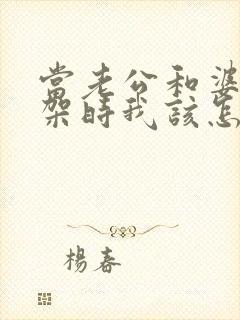 當老公和婆
架時我該怎
楊春